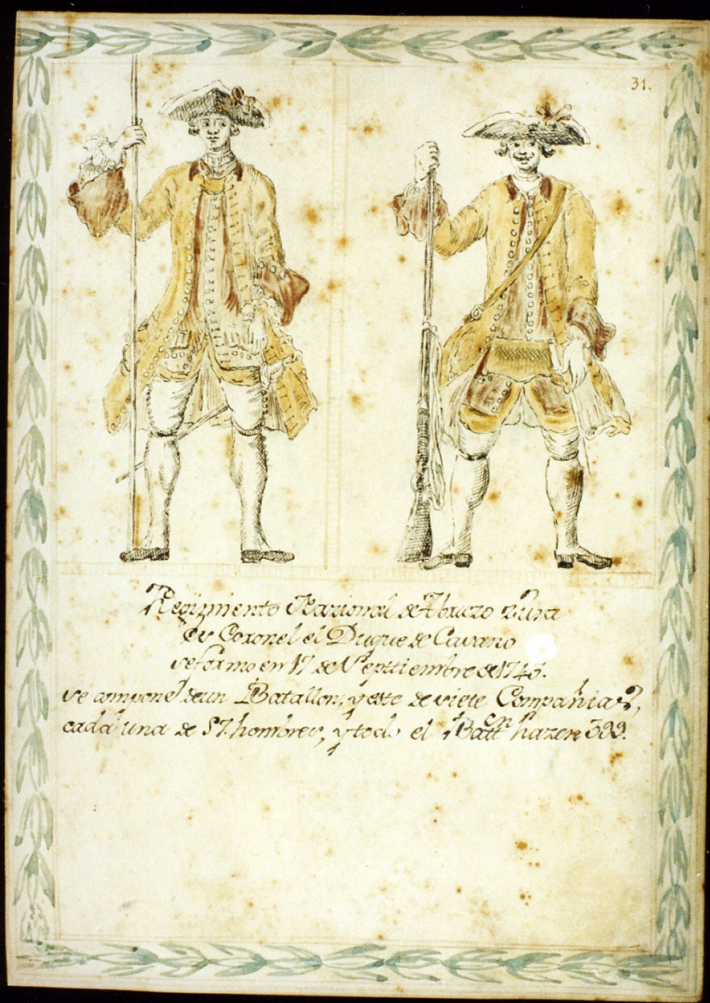 31.
Regimiento Nazional de Abruzo Zitra
es Coronel el Duque de
se formo en 17 de Septtiembre de 1743.
se compone de un Batallon, y este de siete Compañias,
cada una de 57. hombres, y todo el Batt.on hazen 399.